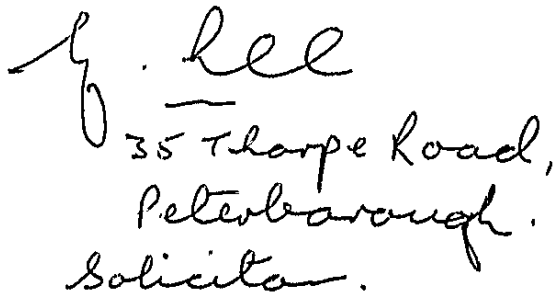 G. Lee
35 Thorpe Road,
Peterborough.
Solicitor.